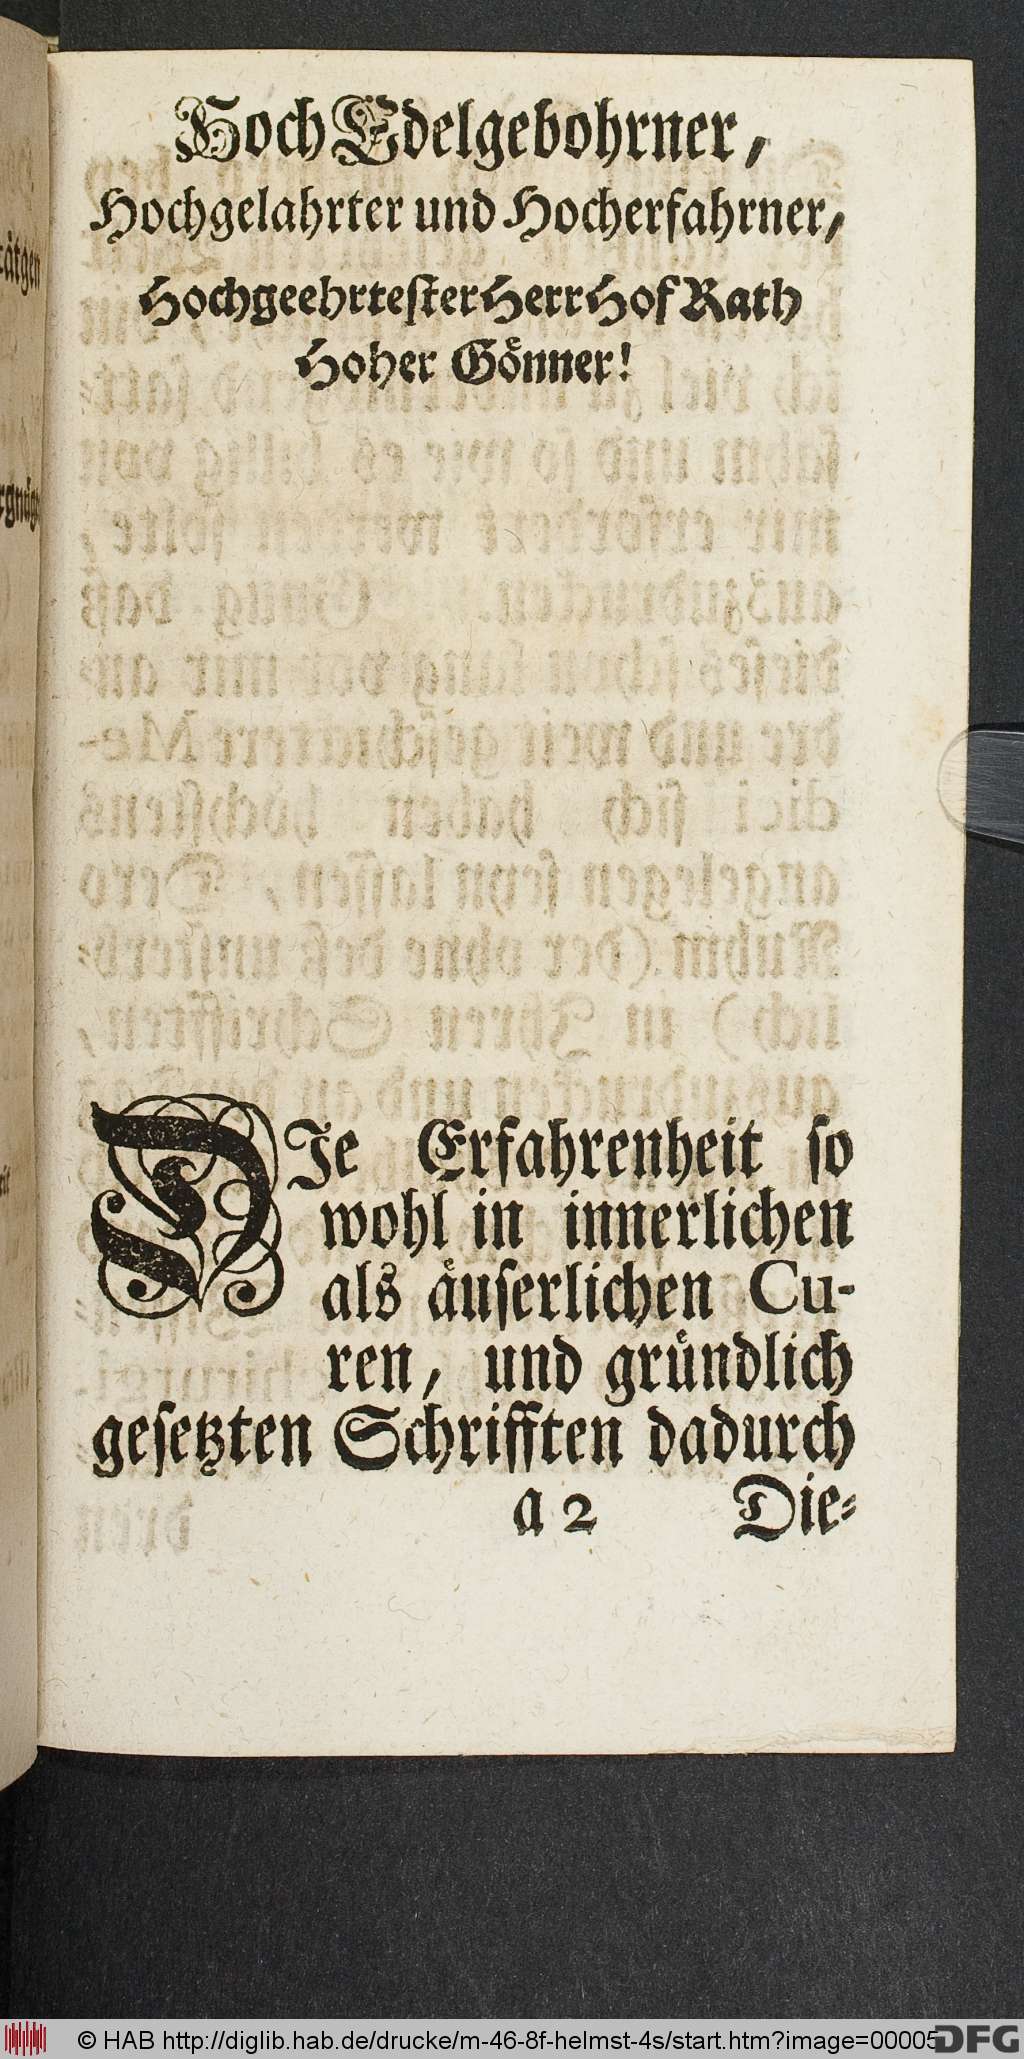 Hoch Edelgebohrner,
Hochgelahrter und Hocherfahrner,
Hochgeehrtester Herr Hof Rath
Hoher Gönner!
DIe Erfahrenheit so
wohl in innerlichen
als äuserlichen Cu-
ren, und gründlich
gesetzten Schrifften dadurch
a 2 Die-
© HAB http://diglib.hab.de/drucke/m-46-8f-helmst-4s/start.htm?image=00005
DFG